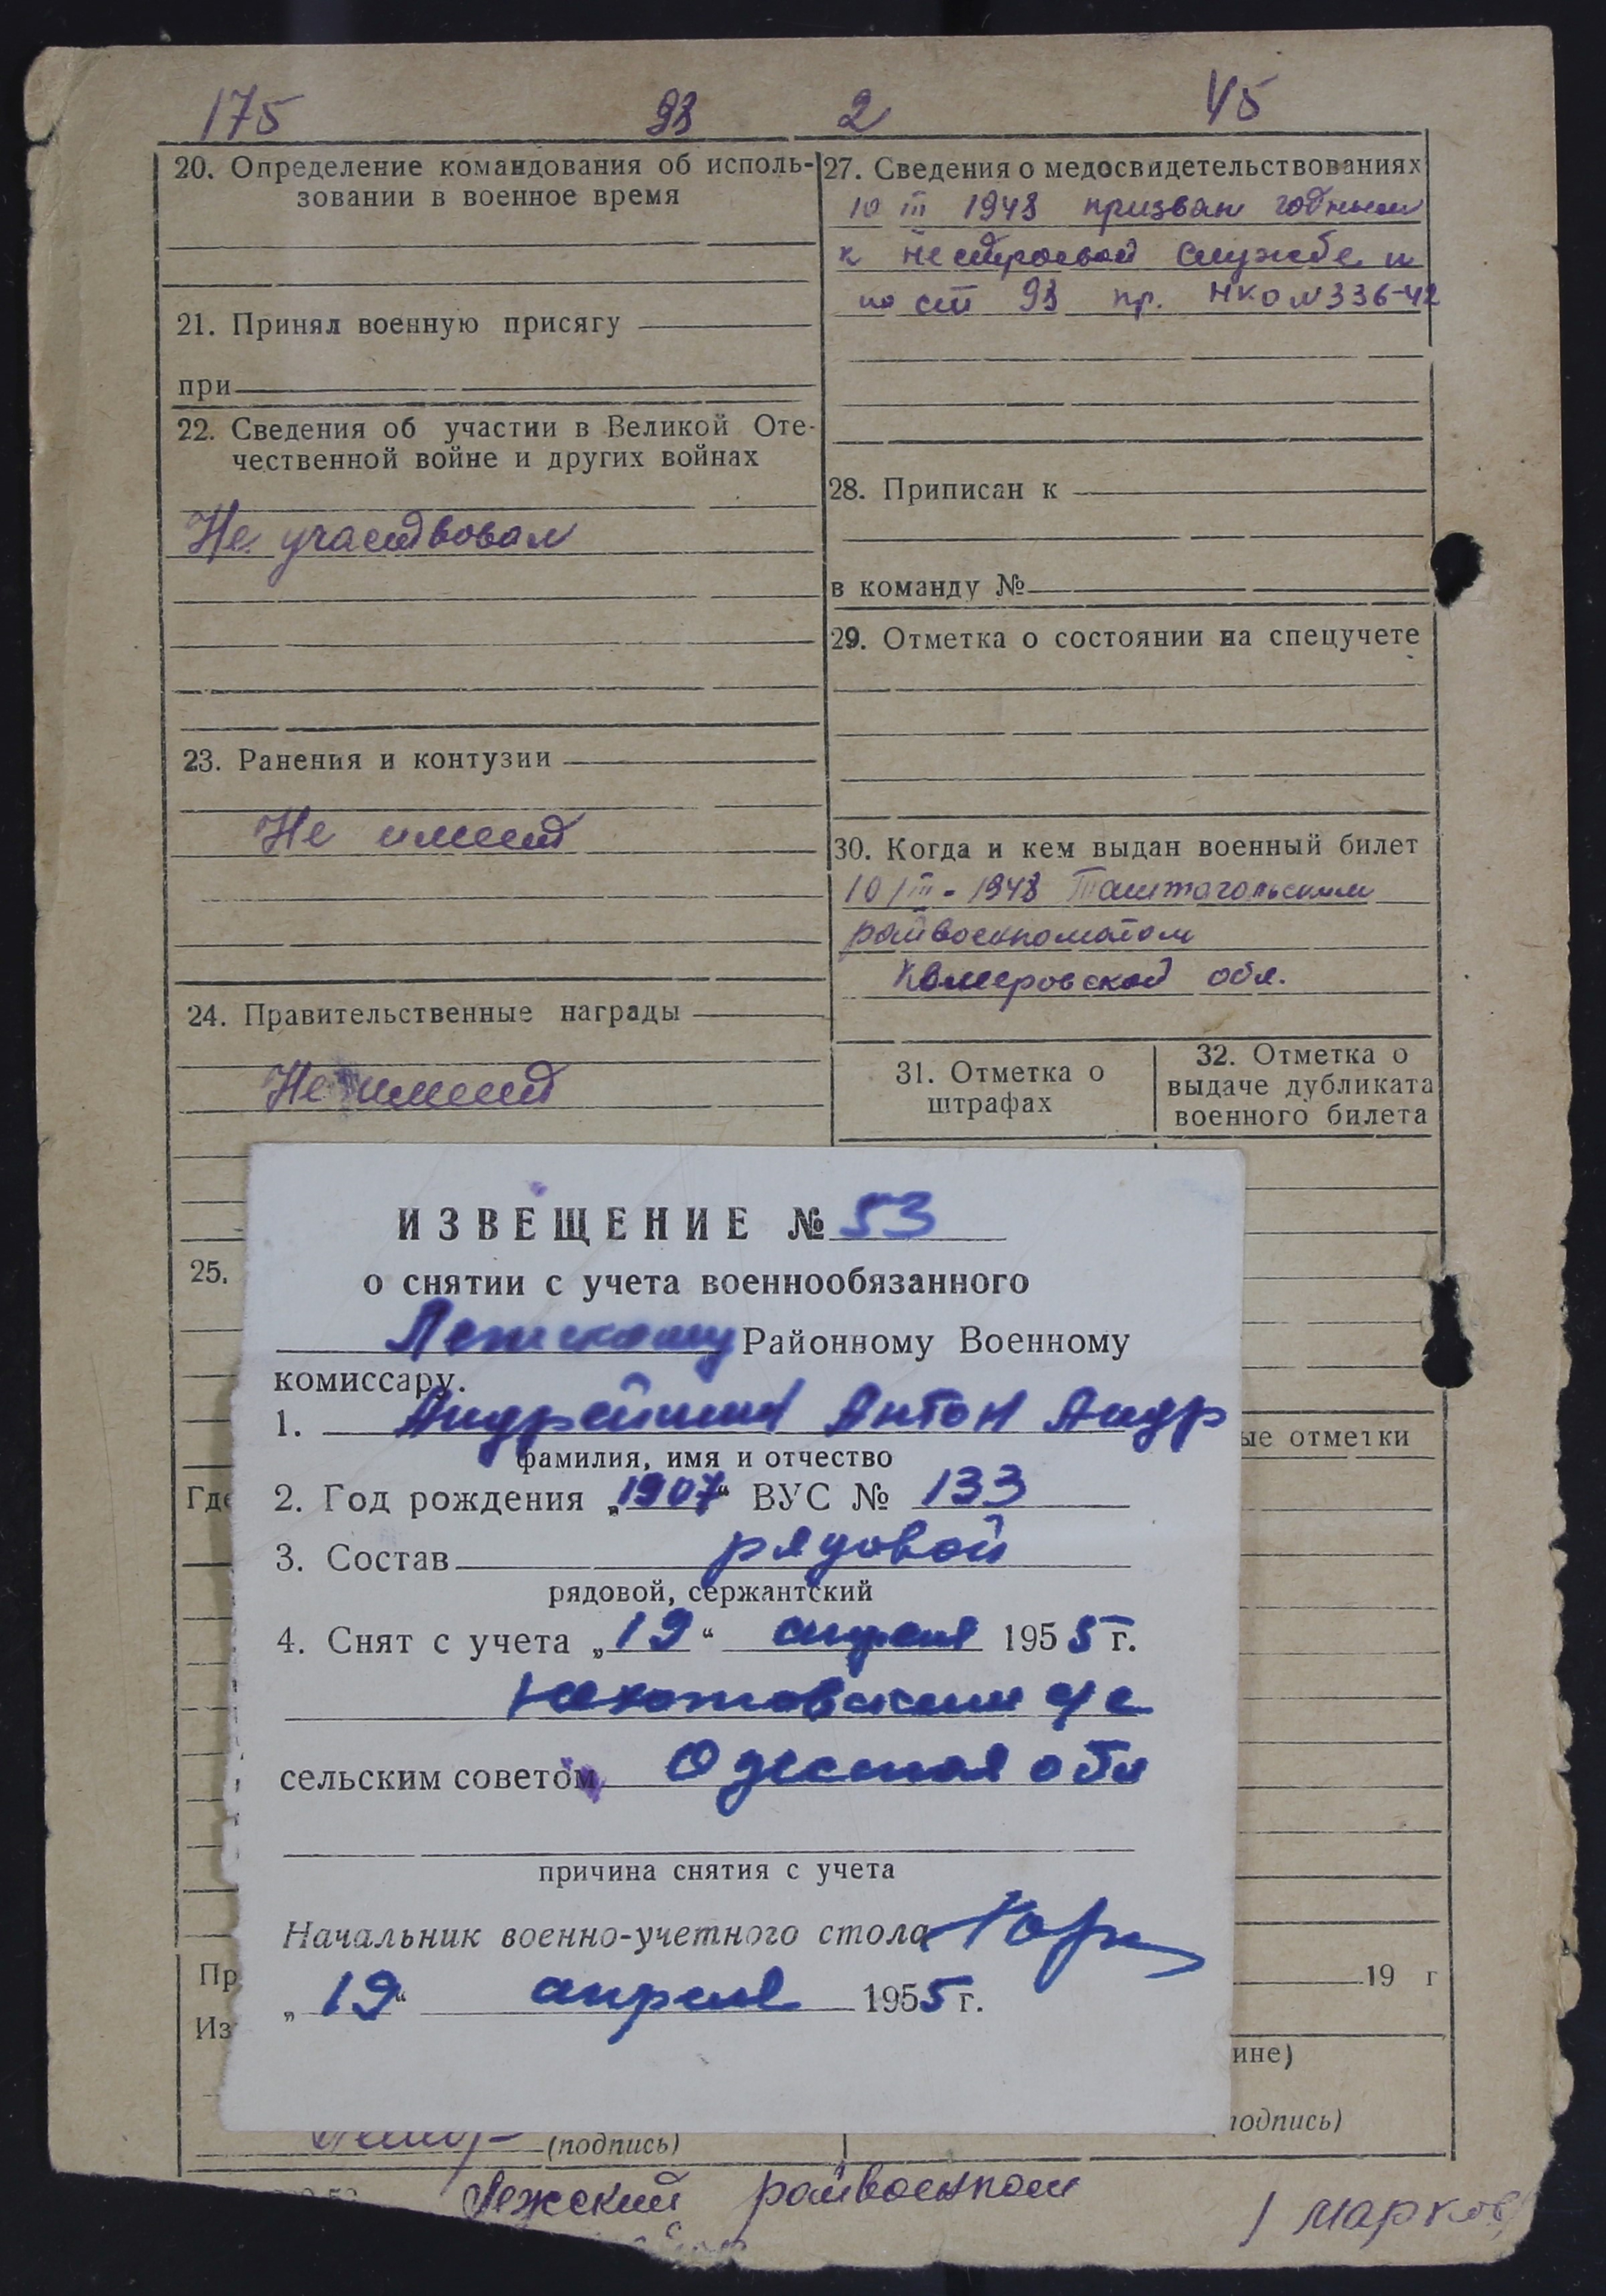 175 93 2 45
20. Определение командования об исполь-
зовании в военное время
21. Принял военную присягу
при
22. Сведения об участии в Великой Оте-
чественной войне и других войнах
Не участвовал
23. Ранения и контузии
Не имеет
24. Правительственные награды
Не имеет
25.
Где
Пр
Из
(подпись)
27. Сведения о медосвидетельствованиях
10 III 1948 призван годным
к нестроевой службе
по ст 93 пр. НКО №336-42
28. Приписан к
в команду №
29. Отметка о состоянии на спецучете
30. Когда и кем выдан военный билет
10/III-1948 Таштагольским
райвоенкоматом
Кемеровской обл.
31. Отметка о
штрафах
32. Отметка о
выдаче дубликата
военного билета
ые отметки
19 г
ине)
подпись)
ИЗВЕЩЕНИЕ № 53
о снятии с учета военнообязанного
Лежскому Районному Военному
комиссару.
1. Андрейчин Антон Андр
фамилия, имя и отчество
2. Год рождения „1907“ ВУС № 133
3. Состав рядовой
рядовой, сержантский
4. Снят с учета „19“ апреля 1955 г.
с/с
сельским советом Одесская обл
причина снятия с учета
Начальник военно-учетного стола
„19“ апреля 1955 г.
Лежский райвоенком
/ Марков